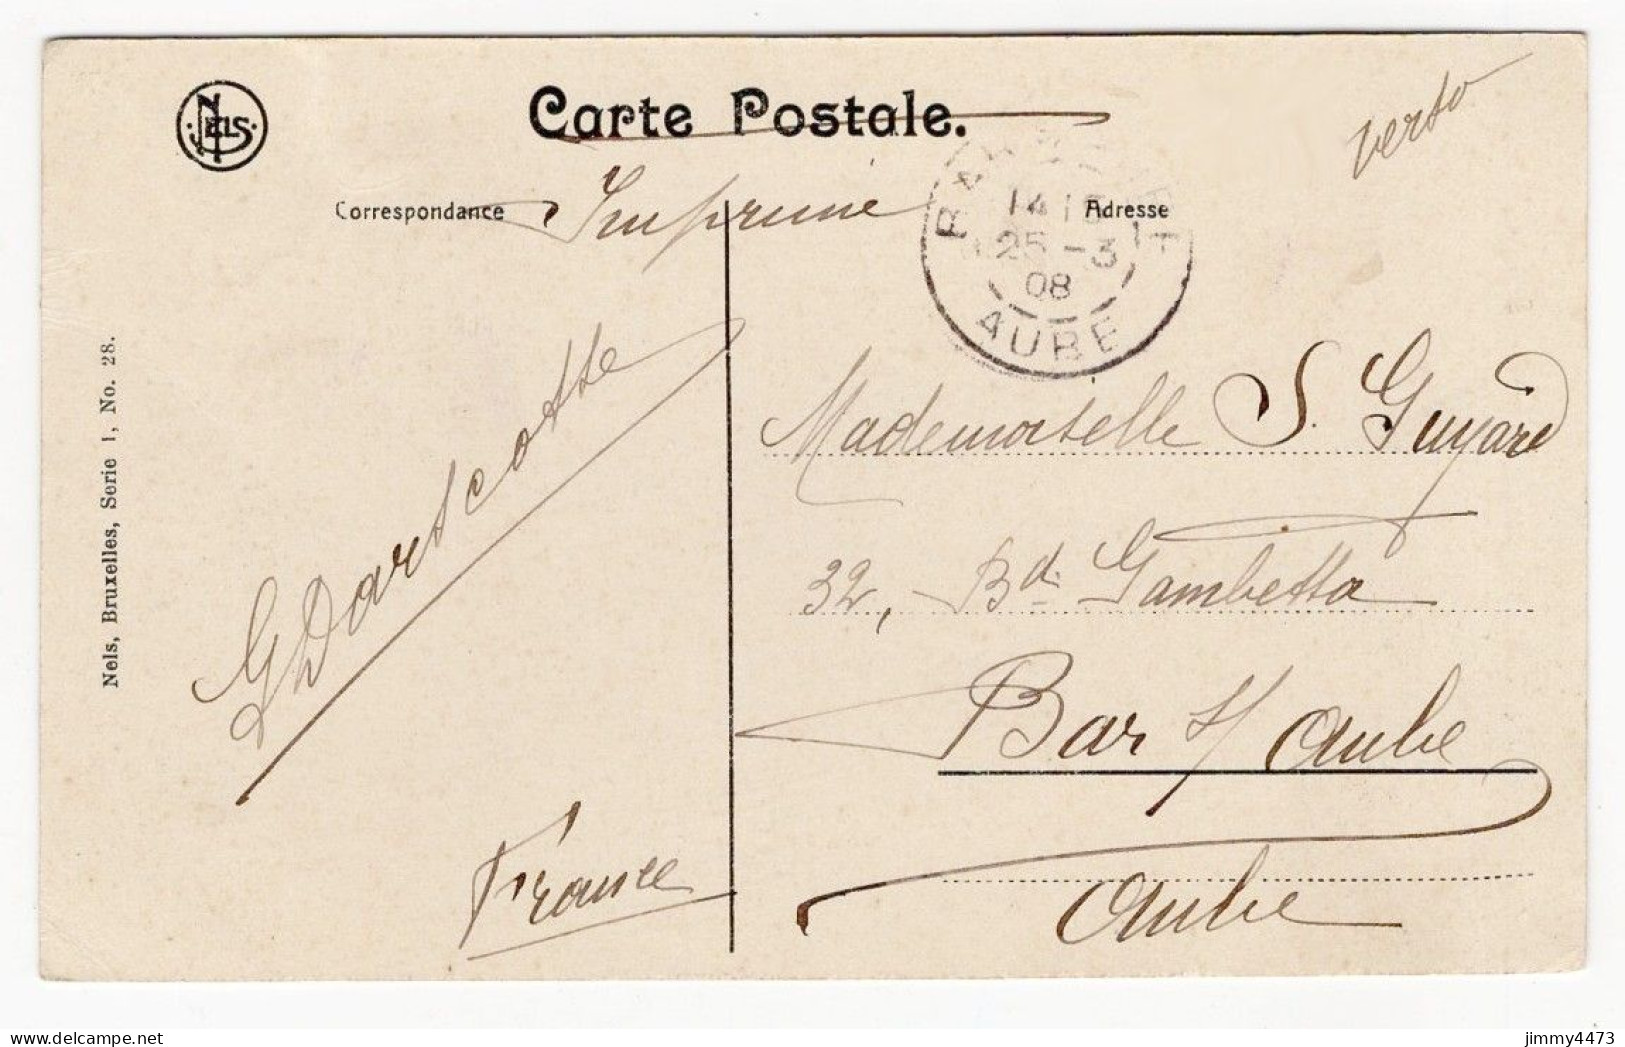 NELS
Carte Postale.
verso
Correspondance
Imprimé
Adresse
14 15
25 - 3
08
AUBE
Mademoiselle S. Guyard
32, - Bd. Gambetta
Bar s/ Aube
Aube
G Darscotte
France
Nels, Bruxelles, Serie 1, No. 28.
jimmy4473